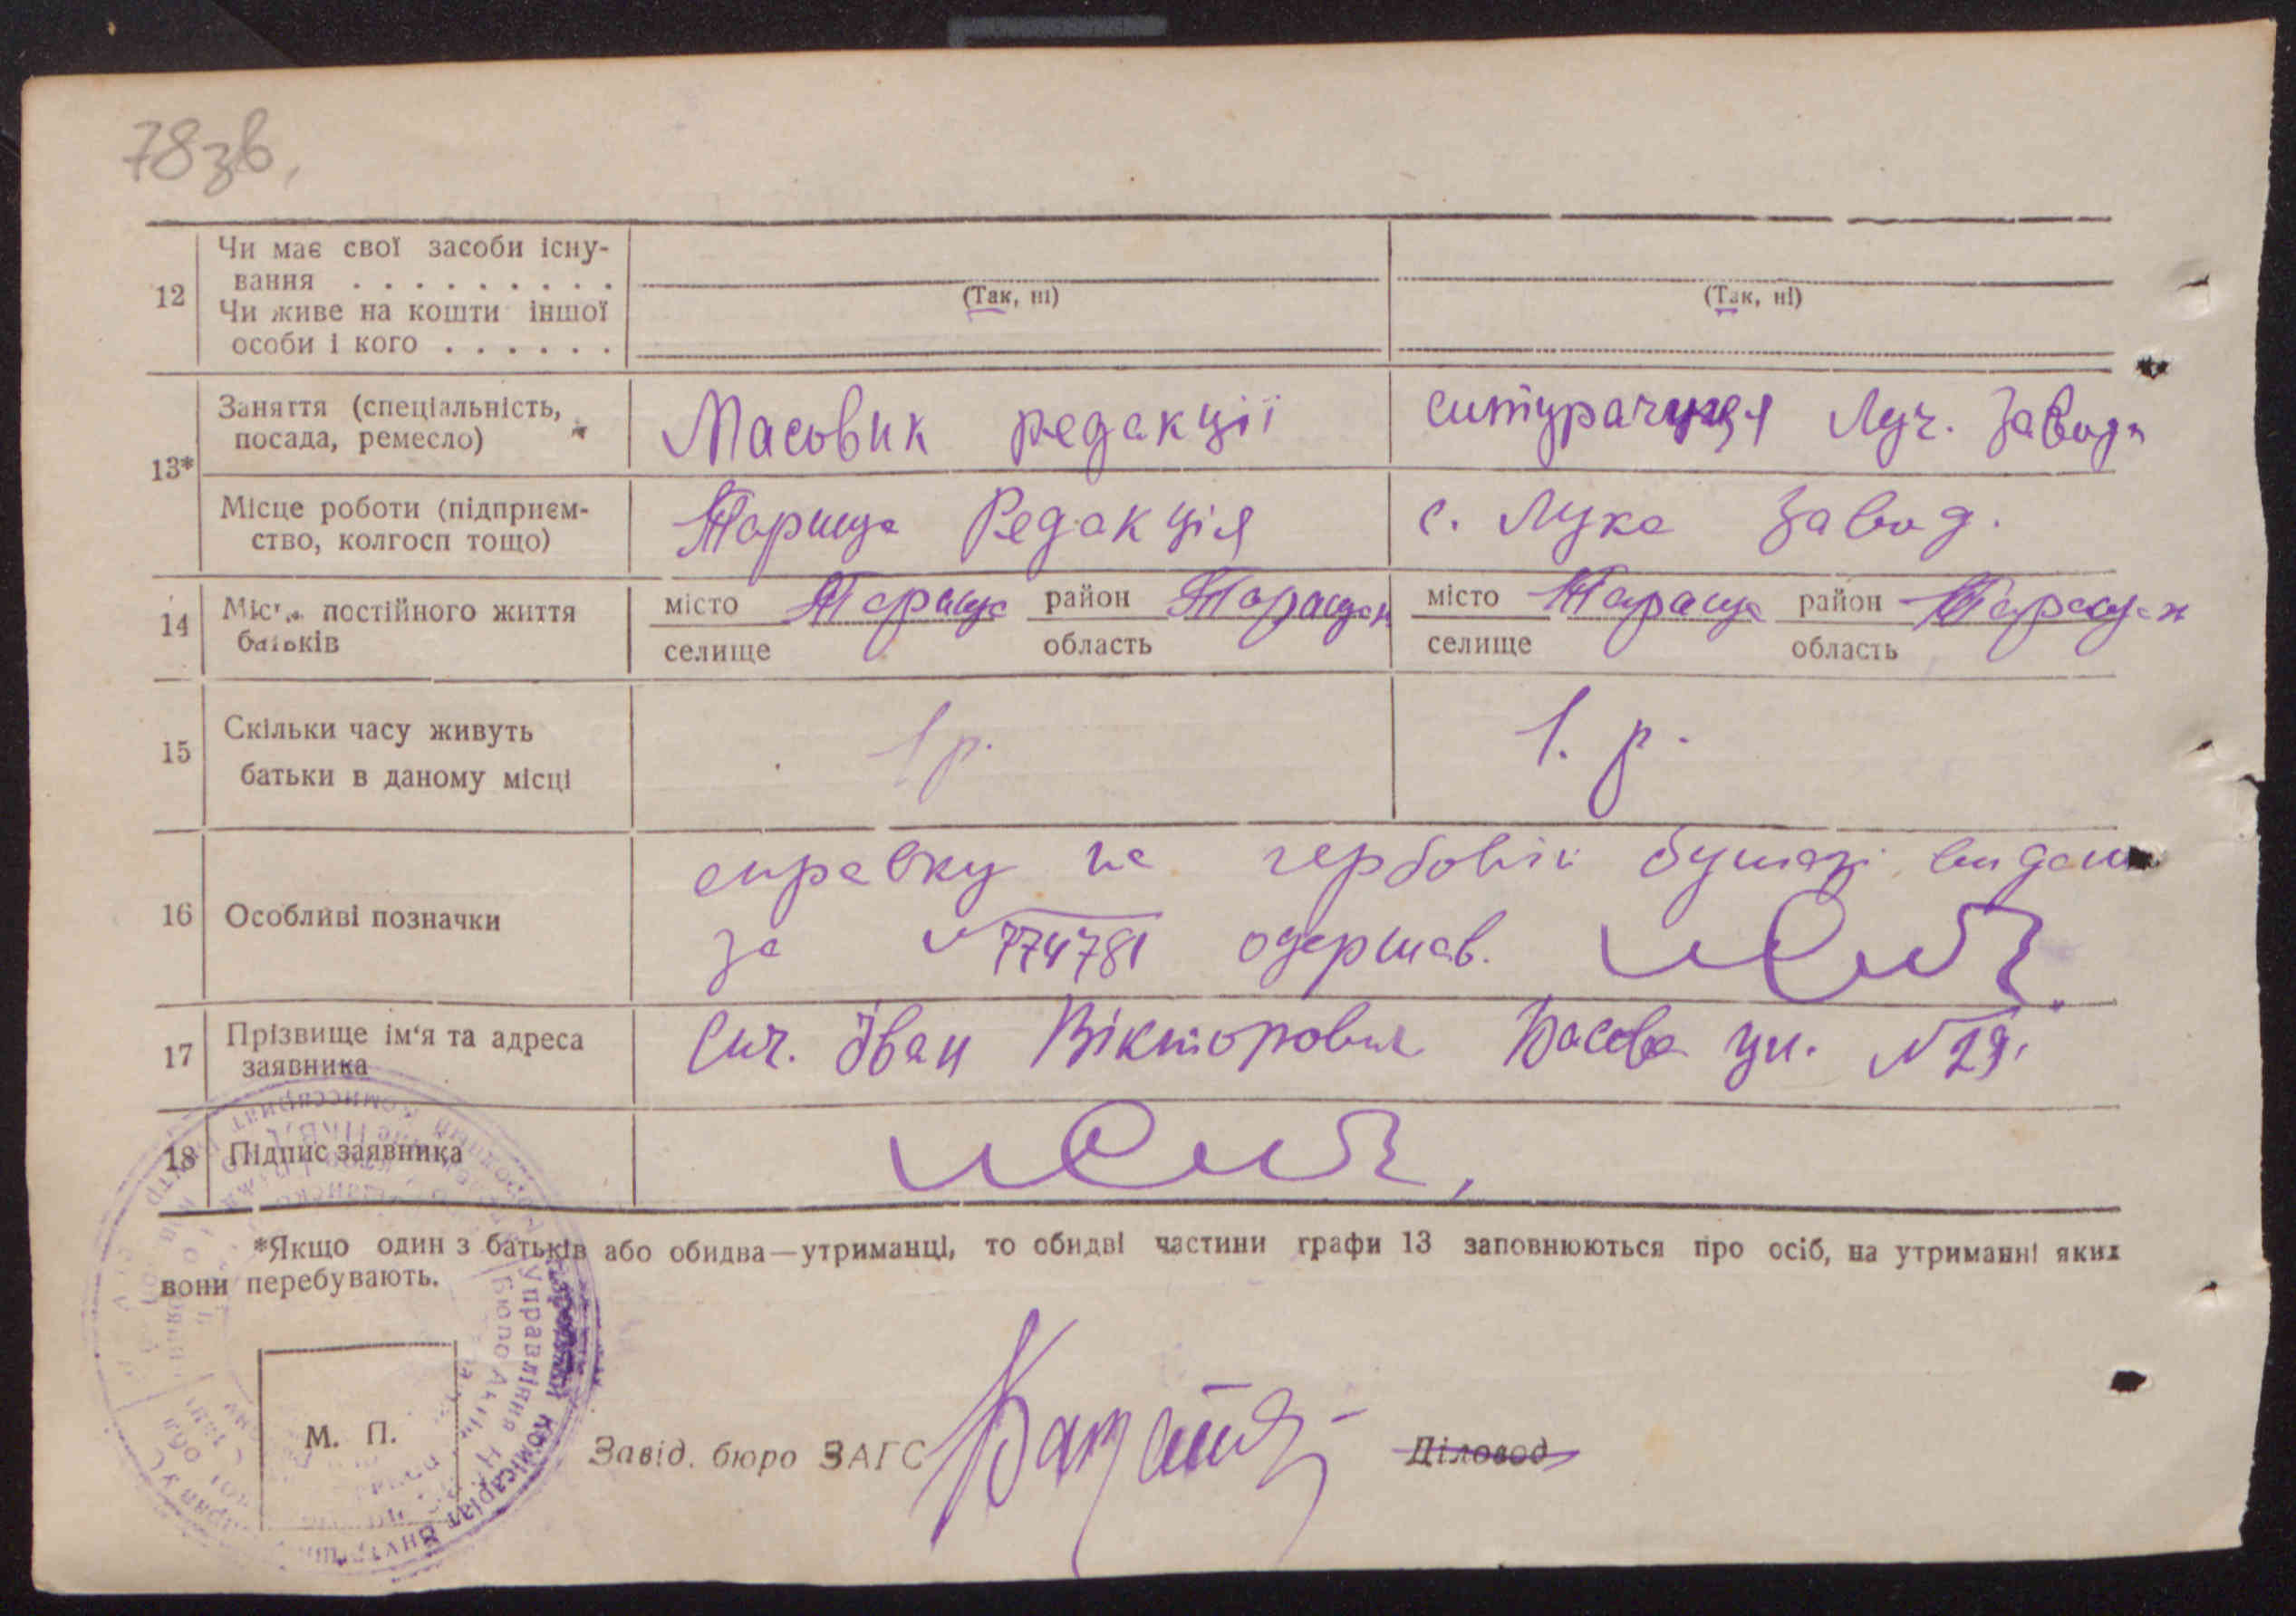 78зв,
12 Чи має свої засоби існу-
вання . . . . . . . . . .
(Так, ні) (Так, ні)
Чи живе на кошти іншої
особи і кого . . . . . .
Заняття (спеціальність, Масовик редакції Луч. Завода
посада, ремесло)
13*
Місце роботи (підприєм- Тараща Редакція с. Лука завод.
ство, колгосп тощо)
14 постійного життя місто Тараща район Таращан місто Тараща район Таращан
батьків селище область селище область
15 Скільки часу живуть 1р. 1. р.
батьки в даному місці
справку на гербовій бумазі видано
16 Особливі позначки
за N 774781 одержав.
17 Прізвище ім'я та адреса Сич. Іван Вікторович Басова ул. N 29.
заявника
18 Підпис заявника
*Якщо один з батьків або обидва—утриманці, то обидві частини графи 13 заповнюються про осіб, на утриманні яких
вони перебувають.
М. П.
Завід. бюро ЗАГС Діловод